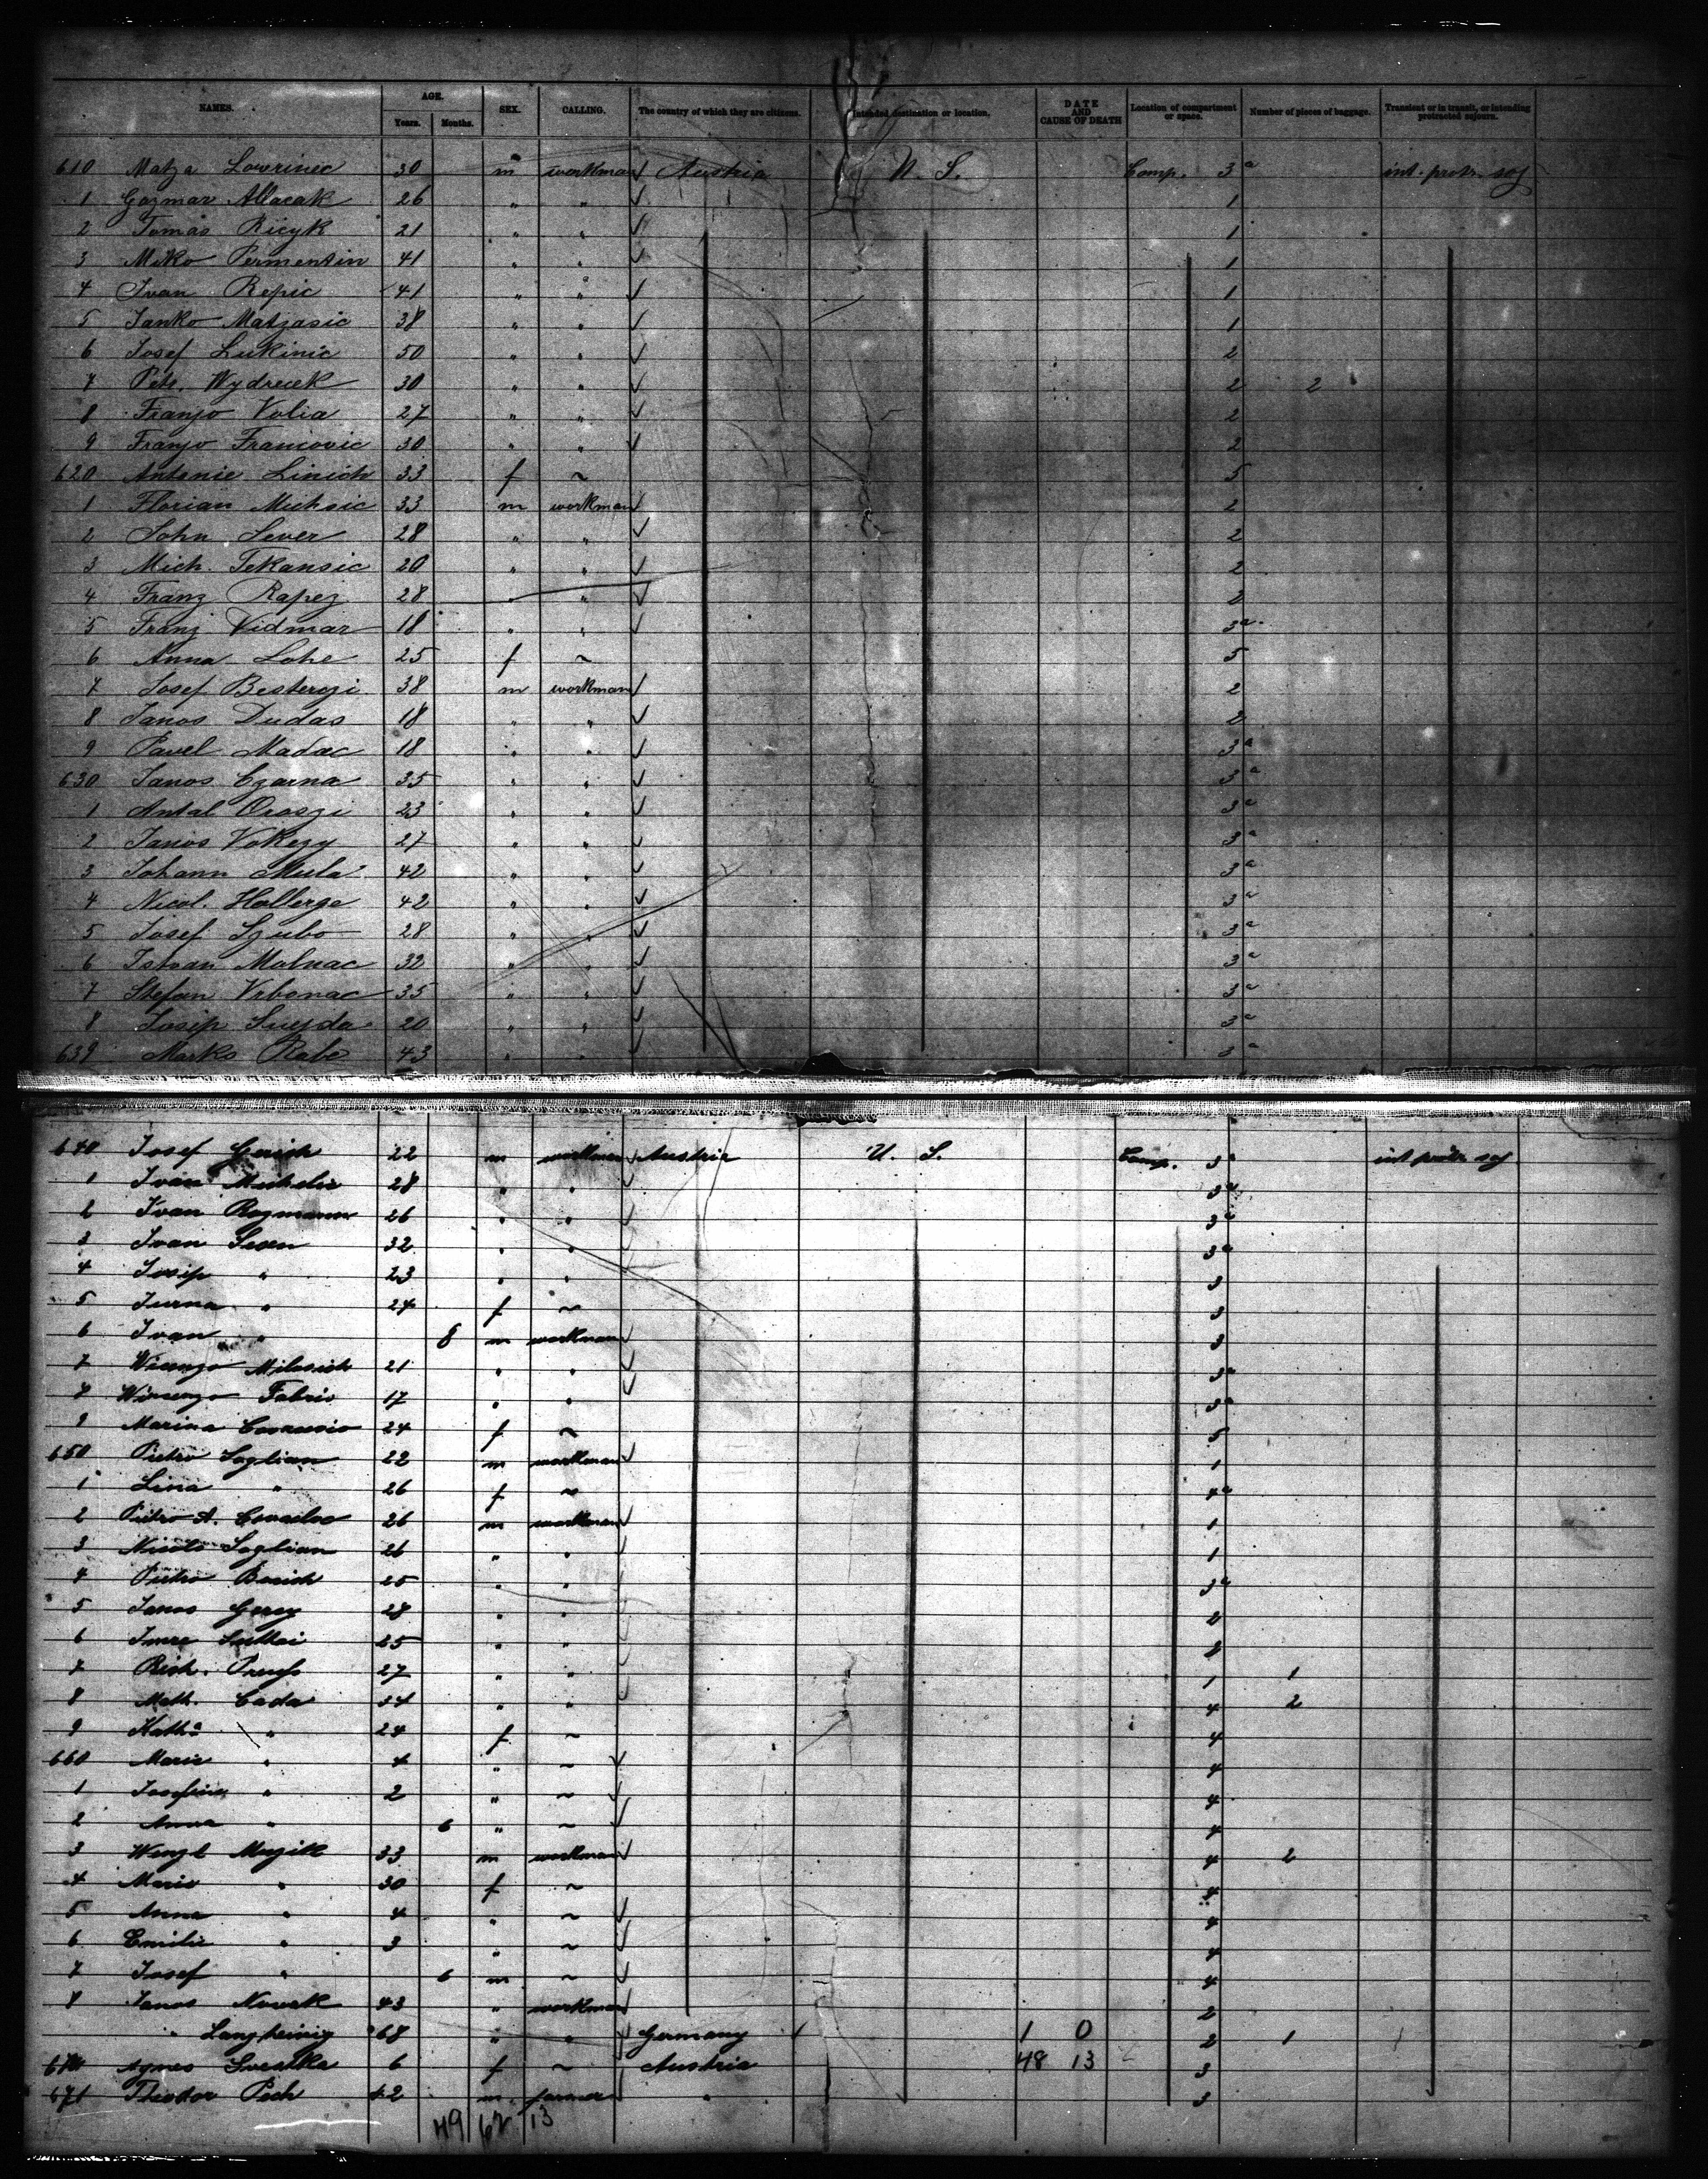 NAMES. AGE. SEX. CALLING. The country of which they are citizens. Intended destination or location. DATE AND CAUSE OF DEATH Location of compartment or space. Number of pieces of baggage. Transient or in transit, or intending protracted sojourn.
Years. Months.
610 Matza Lovrinec 30 m workman Austria U. S. Comp. 3a int. protr. soj
1 Gazmar 26 " " 1
2 Tomas Ricyk 21 " " 1
3 Miko Permentin 41 " " 1
4 Ivan Repic 41 " " 1
5 Janko Matzasic 38 " " 1
6 Josef Lukinic 50 " " 2
7 Pete. Wydrecek 30 " " 2 2
8 Franjo Volia 27 " " 2
9 Franjo Francovic 30 " " 2
620 Antonie Linich 33 f ~ 5
1 Florian Michsic 33 m workman 2
2 John Sever 28 " " 2
3 Mich. Tekansic 20 " " 2
4 Franz Rapez 28 " " 2
5 Franz Vidmar 18 " " 3a
6 Anna Lohe 25 f ~ 5
7 Josef Besterczi 38 m workman 2
8 Janos Dudas 18 " " 2
9 Pavel Madac 18 " " 3a
630 Janos Czarna 35 " " 3a
1 Antal Oroszi 23 " " 3a
2 Janos Vokezy 27 " " 3a
3 Johann Mula 42 " " 3a
4 Nicol. Hollerge 42 " " 3a
5 Josef Szubo 28 " " 3a
6 Istvan Molnac 32 " " 3a
7 Stefan Vrbonac 35 " " 3a
8 Josip 20 " " 3a
639 Marko Rabe 43 " " 3a
640 Josef Gerich 22 m workman Austria U. S. Comp. 3a int protr soj
1 Ivan 28 " " 3a
2 Ivan Rozmann 26 " " 3a
3 Ivan 32 " " 3a
4 Josip " 23 " " 3
5 Jurna " 24 f ~ 3
6 Ivan " 8 m workman 3
7 Vicenzo Milosich 21 " " 3a
Vincenzo Fabric 17 " " 3a
9 Marina 24 f ~ 5
650 Pietro Soglian 22 m workman 1
1 Lina " 26 f ~ 4a
2 Pietro A. 26 m workman 1
3 Nicolo Soglian 26 " " 1
4 Pietro Bosich 25 " " 3a
5 Janos Gercy 28 " " 2
6 Imre 25 " " 2
7 Rich. Preuss 27 " " 1 1
8 Math. Cada 34 " " 4 2
9 Katha " 24 f ~ 4
660 Marie " 4 " ~ 4
1 Josefine " 2 " ~ 4
2 Anna " 6 " ~ 4
3 Wenzl Muzik 33 m workman 4 2
4 Marie " 30 f ~ 4
5 Anna " 4 " ~ 4
6 Emilie " 3 " ~ 4
7 Josef " 6 m ~ 4
8 Janos Novak 43 " workman 2
" Langheinig 68 " " Germany 1 0 2 1
670 Agnes Svecatka 6 f ~ Austria 48 13 3
671 Theodor Pech 42 m farmer " 3
49/62/13